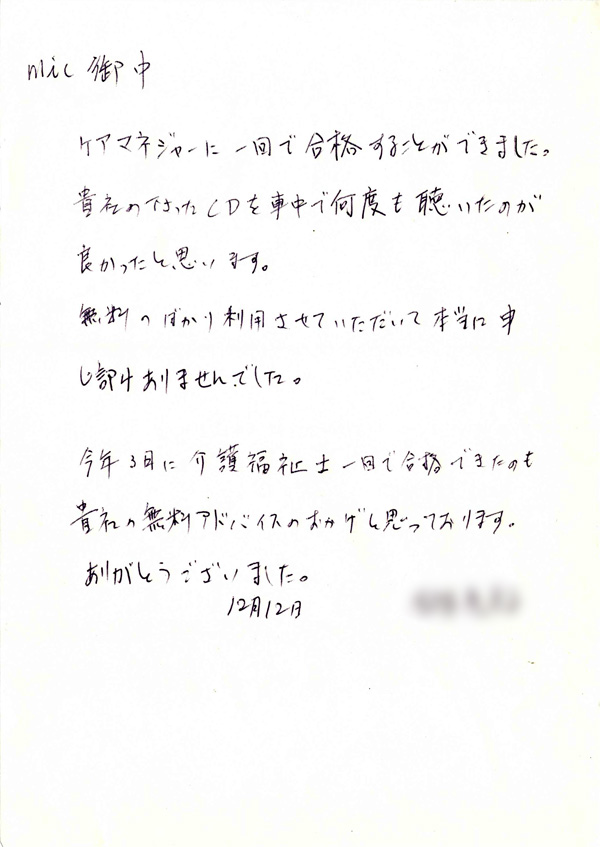 mic 御中
ケアマネジャーに一回で合格することができました。
貴社の下さったCDを車中で何度も聴いたのが
良かったと思います。
無料のばかり利用させていただいて本当に申
し訳ありませんでした。
今年3月に介護福祉士一回で合格できたのも
貴社の無料アドバイスのおかげと思っております。
ありがとうございました。
12月12日